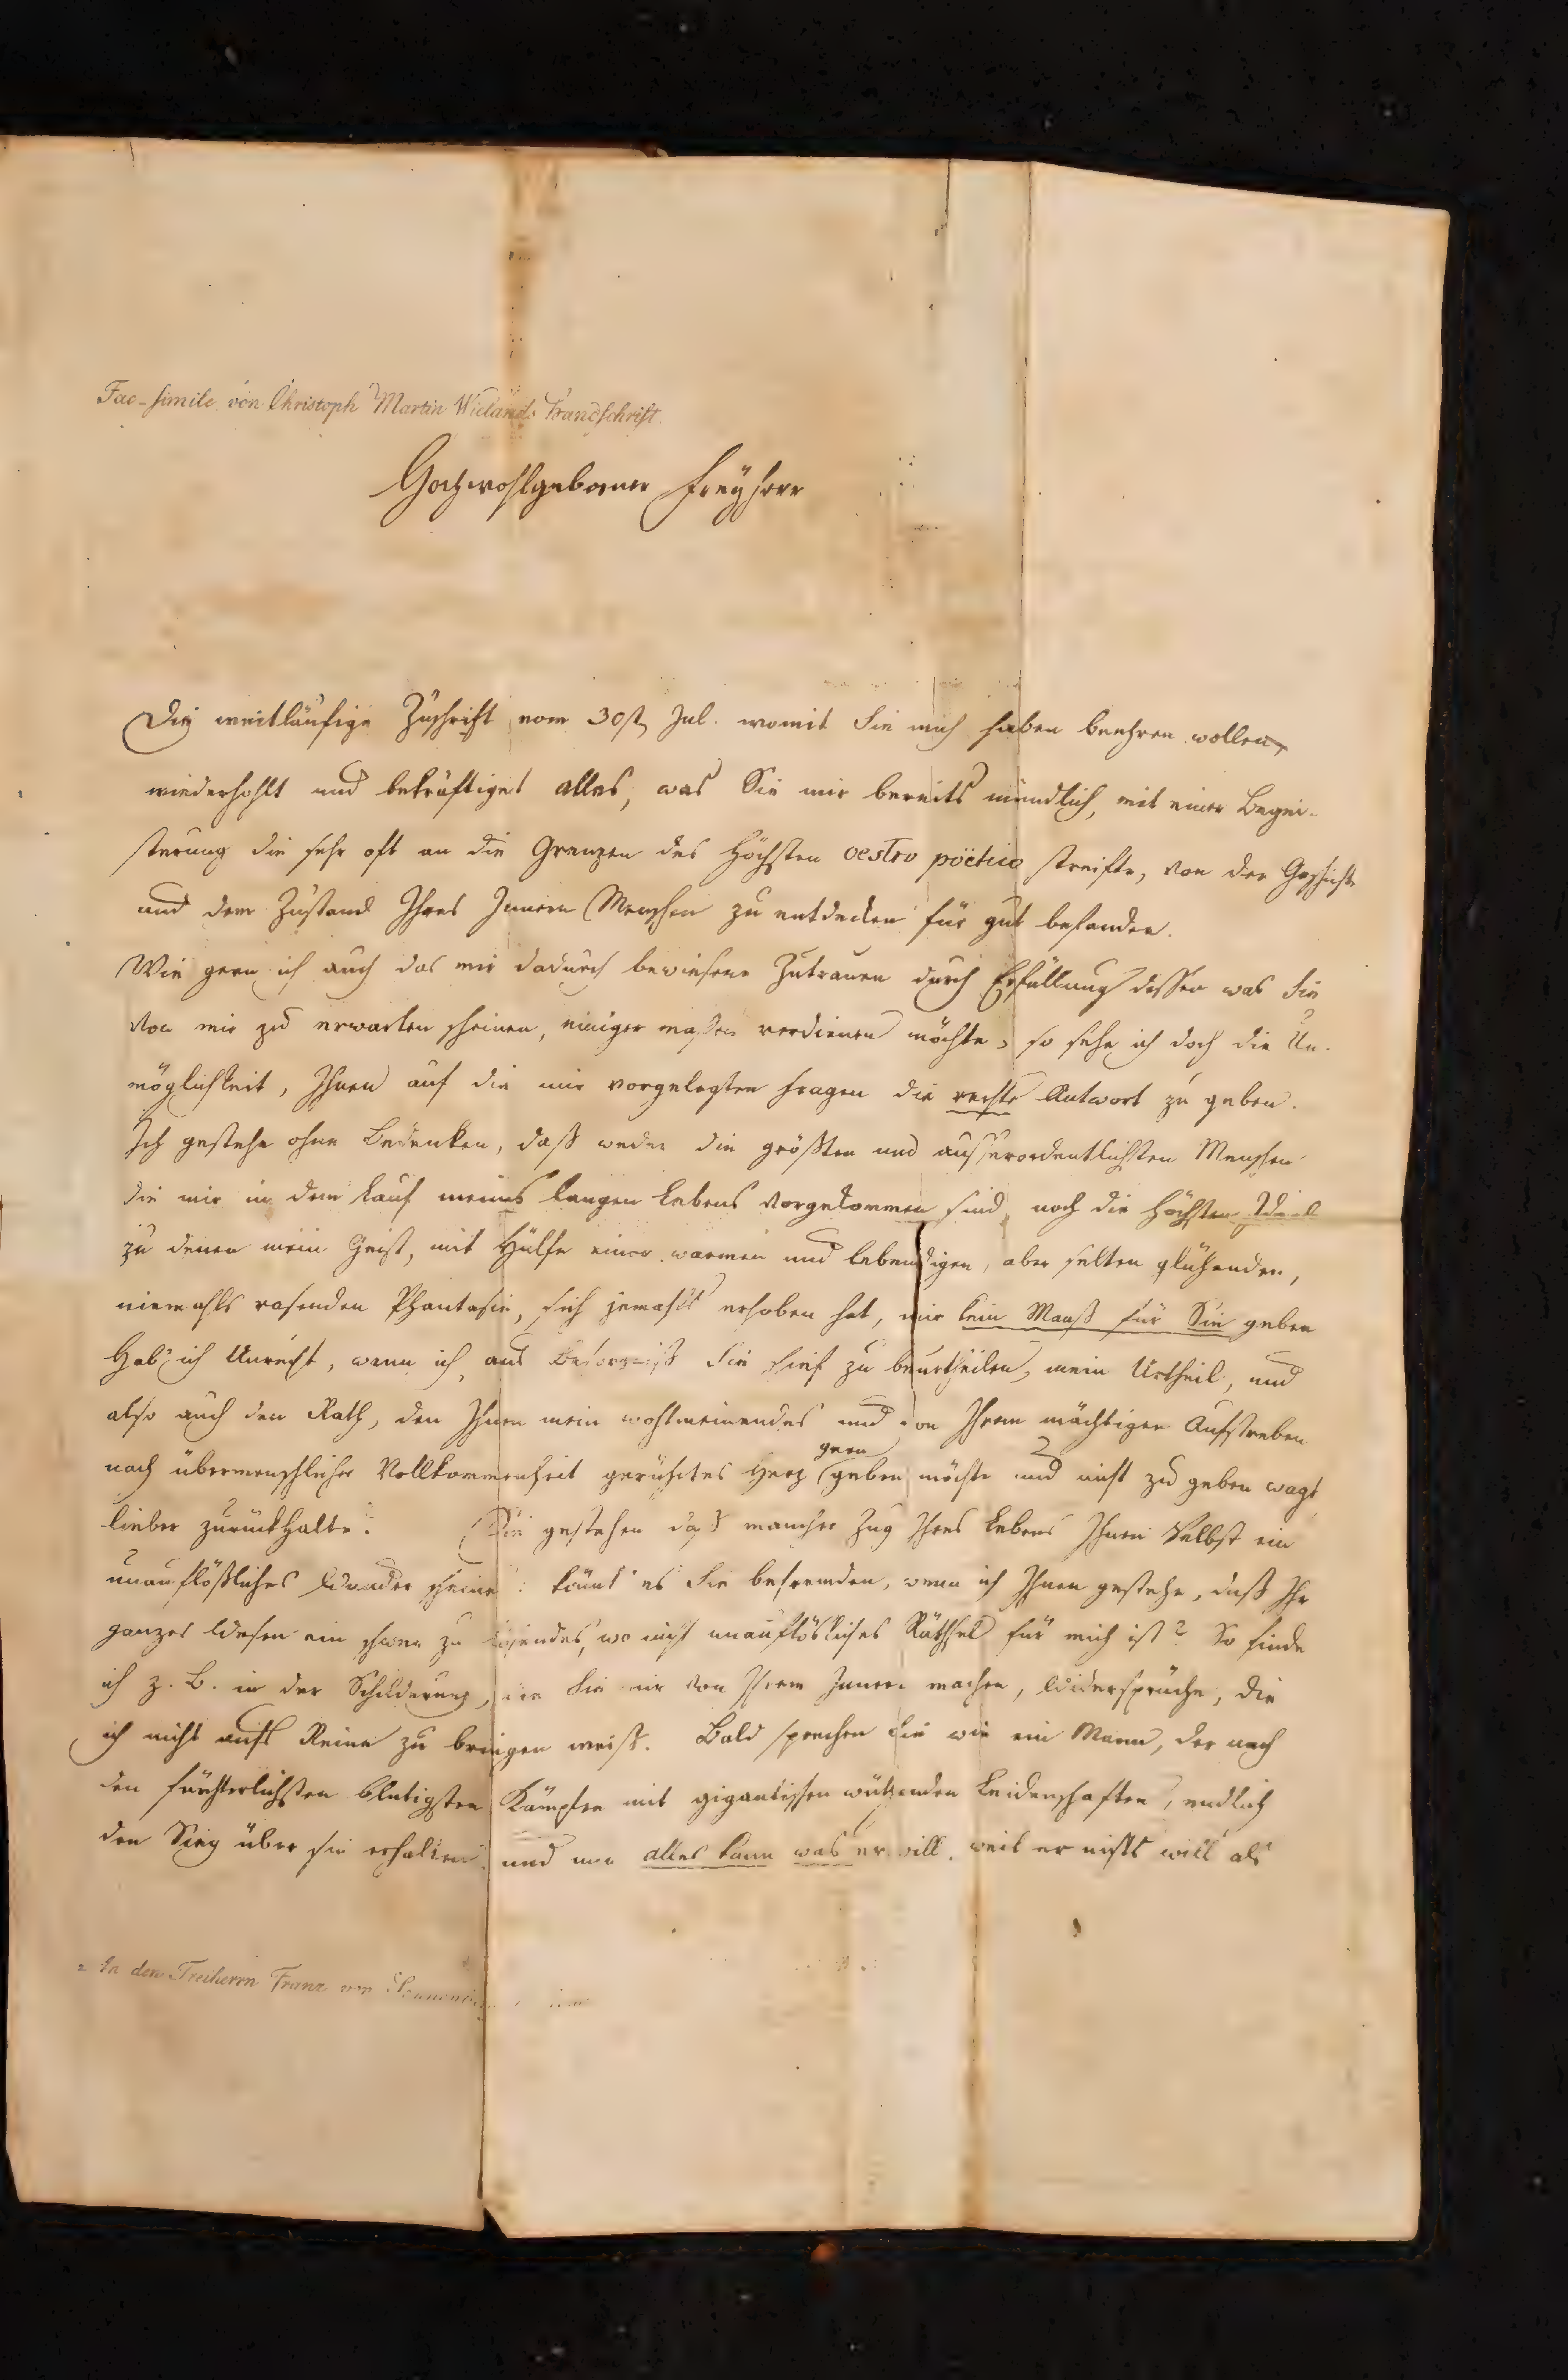 Fac-simile von Christoph Martin Wielands Handschrift.
Hochwohlgeborner Freyherr
Die weitläufige Zuschrift vom 30st Jul. womit Sie mich haben beehren wollen,
wiederhohlt und bekräftiget alles, was Sie mir bereits mündlich, mit einer Begei-
sterung die sehr oft an die Grenzen des höchsten oestro poëtico streifte, von der Geschichte
und dem Zustand Ihres Innern Menschen zu entdecken für gut befanden.
Wie gern ich auch das mir dadurch bewiesene Zutrauen durch Erfüllung dessen was Sie
von mir zu erwarten scheinen, einiger maßen verdienen möchte, so sehe ich doch die Un-
möglichkeit, Ihnen auf die mir vorgelegten Fragen die rechte Antwort zu geben.
Ich gestehe ohne Bedenken, daß weder die größten und ausserordentlichsten Menschen
die mir in dem Lauf meines langen Lebens vorgekommen sind, noch die höchsten Ideale
zu denen mein Geist, mit Hülfe einer warmen und lebendigen, aber selten glühenden,
niemahls rasenden Phantasie, sich jemahls erhoben hat, mir kein Maaß für Sie geben
Hab' ich Unrecht, wenn ich, aus Besorgniß Sie schief zu beurtheilen, mein Urtheil, und
also auch den Rath, den Ihnen mein wohlmeinendes und von Ihrem mächtigen Aufstreben
nach übermenschlicher Vollkommenheit gerührtes Herz gern geben möchte und nicht zu geben wagt,
lieber zurückhalte? Sie gestehen daß mancher Zug Ihres Lebens Ihnen Selbst ein
unauflößliches Wunder scheine: könnt' es Sie befremden, wenn ich Ihnen gestehe, daß Ihr
ganzes Wesen ein schwer zu lösendes, wo nicht unauflösliches Räthsel für mich ist? So finde
ich z. B. in der Schilderung, die Sie mir von Ihrem Innern machen, Widersprüche, die
ich nicht aufs Reine zu bringen weiß. Bald sprechen Sie wie ein Mann, der nach
den fürchterlichsten blutigsten Kämpfen mit gigantischen wüthenden Leidenschaften, endlich
den Sieg über sie erhalten und nun alles kann was er will, weil er nichts will als
An den Freiherrn Franz von